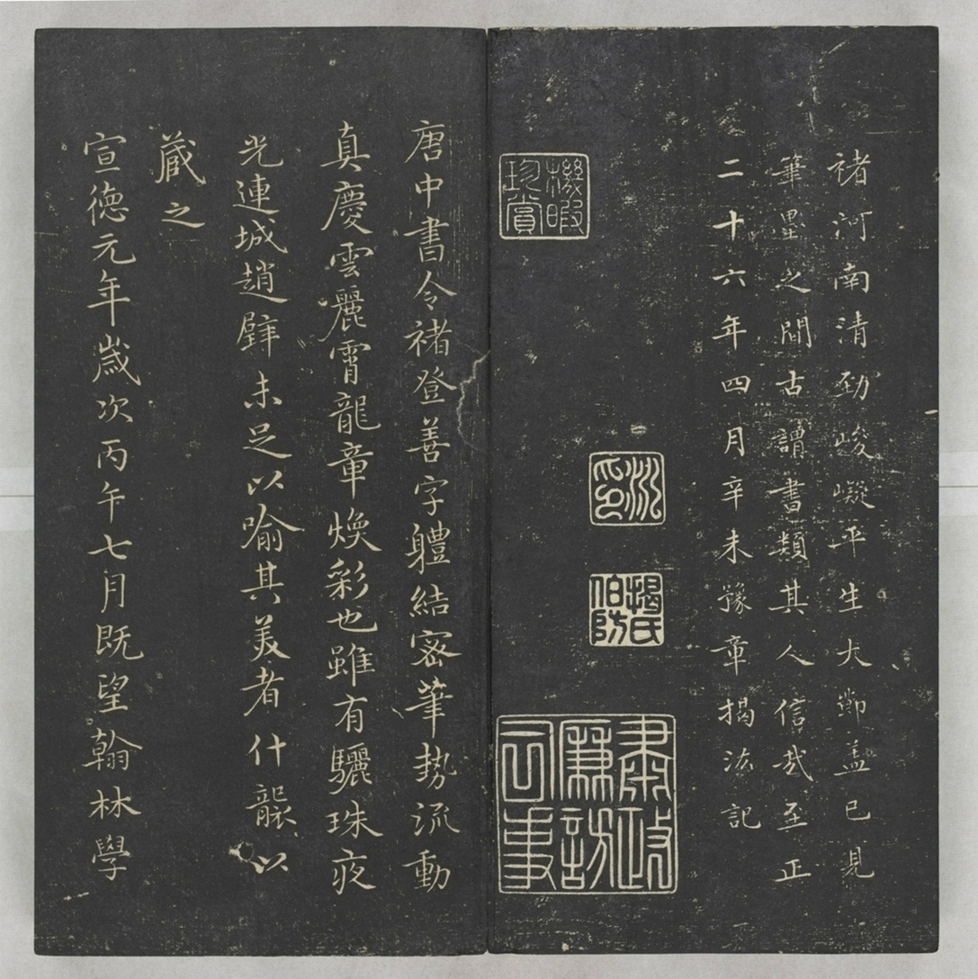 褚河南清勁峻嶷平生大節盖已見
筆墨之間古謂書類其人信哉至正
二十六年四月辛未豫章揭汯記
汯印
揭氏伯防
肅政廉訪司事
機暇珍賞
唐中書令褚登善字軆結密筆勢流動
真慶雲麗霄龍章煥彩也雖有驪珠夜
光連城趙璧未足以喻其美者什襲以
藏之
宣德元年歲次丙午七月既望翰林學